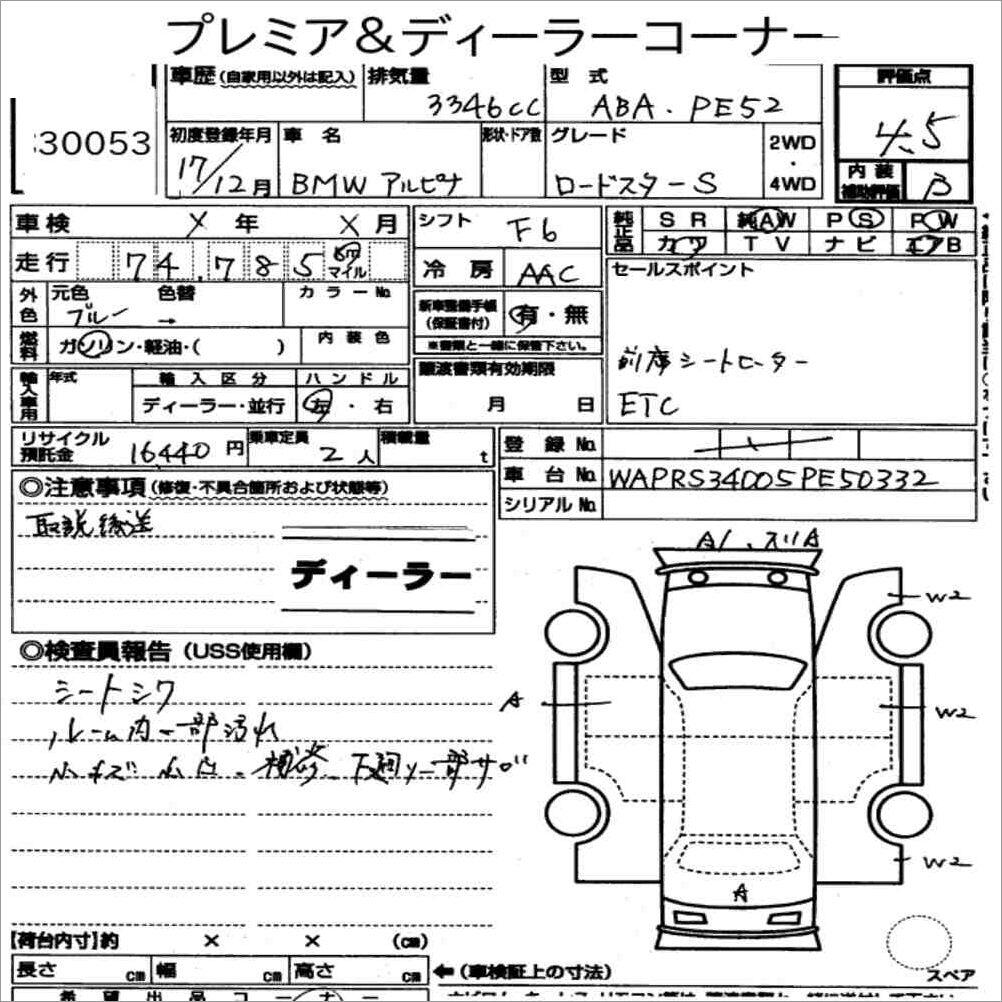 プレミア&ディーラーコーナー
車歴 (自家用以外は記入) 排気量 型式 評価点
3346cc ABA・PE52
4.5
30053
初度登録年月 車名 形状・ドア数 グレード 2WD・4WD
17/12月 BMW アルピナ ロードスターS
内装補助評価 B
車検 × 年 × 月 シフト F6
純正品 SR 純AW PS PW
カワ TV ナビ エアB
走行 74,785 km マイル
冷房 AAC セールスポイント
外色 元色 色替 カラーNo.
ブルー →
新車整備手帳(保証書付) 有・無
※書類と一緒に保管下さい。
燃料 ガソリン・軽油・( ) 内装色
前席シートヒーター
ETC
輸入車用 年式 輸入区分 ハンドル
ディーラー・並行 左・右
譲渡書類有効期限
月 日
リサイクル預託金 16440円 乗車定員 2人 積載量 t
登録No.
車台No. WAPRS34005PE50332
シリアルNo.
◎注意事項 (修復・不具合箇所および状態等)
取説後送
ディーラー
A1、スリA
W2
◎検査員報告 (USS使用欄)
シートシワ
A
W2
ルーム内一部汚れ
小キズ 小凹。補修 下廻り一部サビ
W2
A
【荷台内寸】約 × × (cm)
長さ cm 幅 cm 高さ cm
←(車検証上の寸法)
スペア
希望出品コーナー